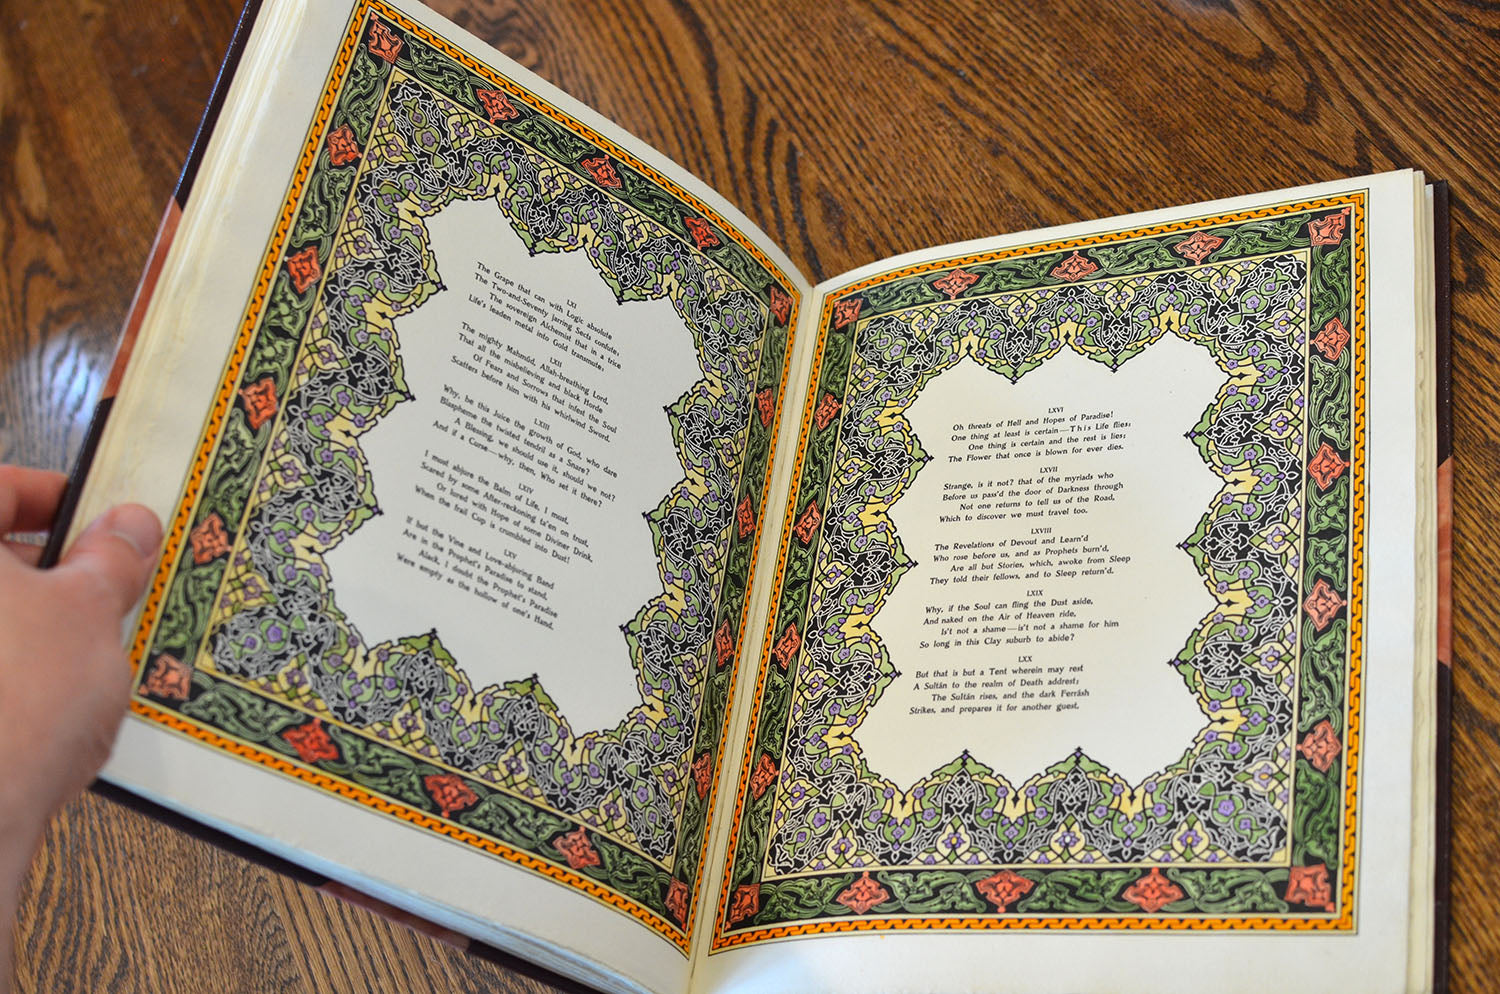 LXI
The Grape that can with Logic absolute
The Two-and-Seventy jarring Sects confute;
The sovereign Alchemist that in a trice
Life's leaden metal into Gold transmute;
LXII
The mighty Mahmúd, Allah-breathing Lord,
That all the misbelieving and black Horde
Of Fears and Sorrows that infest the Soul
Scatters before him with his whirlwind Sword.
LXIII
Why, be this Juice the growth of God, who dare
Blaspheme the twisted tendril as a Snare?
A Blessing, we should use it, should we not?
And if a Curse—why, then, Who set it there?
LXIV
I must abjure the Balm of Life, I must,
Scared by some After-reckoning ta'en on trust,
Or lured with Hope of some Diviner Drink,
When the frail Cup is crumbled into Dust!
LXV
If but the Vine and Love-abjuring Band
Are in the Prophet's Paradise to stand,
Alack, I doubt the Prophet's Paradise
Were empty as the hollow of one's Hand.
LXVI
Oh threats of Hell and Hopes of Paradise!
One thing at least is certain—This Life flies;
One thing is certain and the rest is lies;
The Flower that once is blown for ever dies.
LXVII
Strange, is it not? that of the myriads who
Before us pass'd the door of Darkness through
Not one returns to tell us of the Road,
Which to discover we must travel too.
LXVIII
The Revelations of Devout and Learn'd
Who rose before us, and as Prophets burn'd,
Are all but Stories, which, awoke from Sleep
They told their fellows, and to Sleep return'd.
LXIX
Why, if the Soul can fling the Dust aside,
And naked on the Air of Heaven ride,
Is't not a shame—is't not a shame for him
So long in this Clay suburb to abide?
LXX
But that is but a Tent wherein may rest
A Sultán to the realm of Death addrest;
The Sultán rises, and the dark Ferrásh
Strikes, and prepares it for another guest.